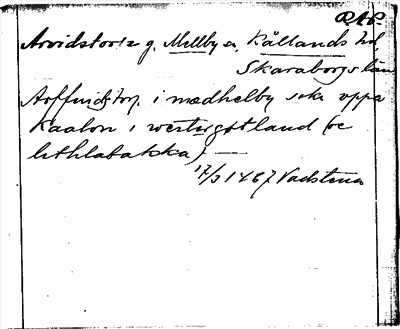 RAP.
Arvidstorp g. Mellby s, Kållands hd,
Skaraborgs län
Arffuidstorp i mædhelby sokn vppa
Kaalon i westergötland (oc
lithlabakka) —
17/3 1467 Vadstena